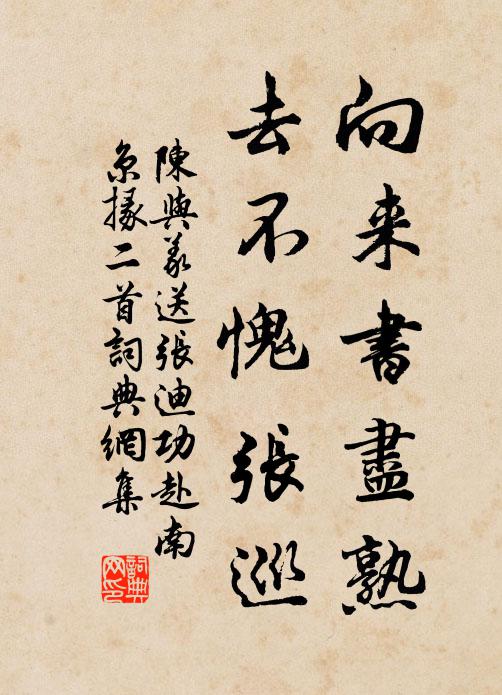 向来書盡熟
去不愧張巡
陳與義送張迪功赴南
京掾二首詞典網集
詞典
网印